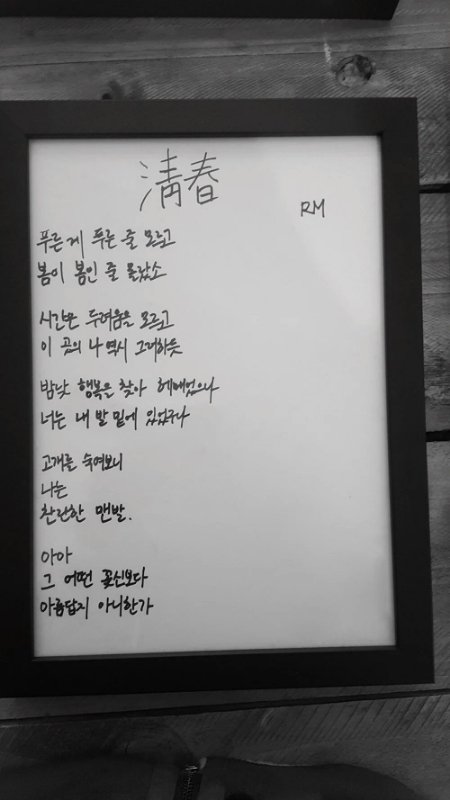 清春
RM
푸른 게 푸른 줄 모르고
봄이 봄인 줄 몰랐소
시간은 두려움을 모르고
이 곳의 나 역시 그러하듯
밤낮 행복을 찾아 헤매었으나
너는 내 발 밑에 있었구나
고개를 숙여보니
나는
찬란한 맨발.
아아
그 어떤 꽃신보다
아름답지 아니한가